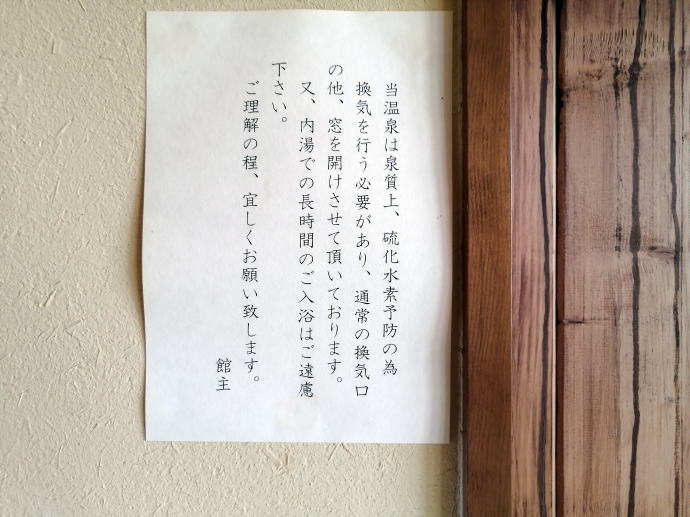 当温泉は泉質上、硫化水素予防の為
換気を行う必要があり、通常の換気口
の他、窓を開けさせて頂いております。
又、内湯での長時間のご入浴はご遠慮
下さい。
ご理解の程、宜しくお願い致します。
館主